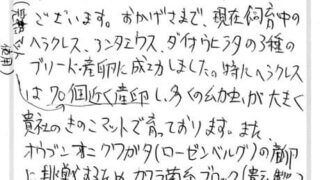 ございます。おかげさまで、現在飼育中の
ヘラクレス、コンタミウス、ダイオウヒラタの3種の
ブリード・産卵に成功しました。特にヘラクレス
は70個近く産卵し、多くの幼虫が大きく
貴社のきのこマットで育っております。また、
オウゴンオニクワガタ(ローゼンベルグ)の産卵
に挑戦するため カワラ菌糸ブロック